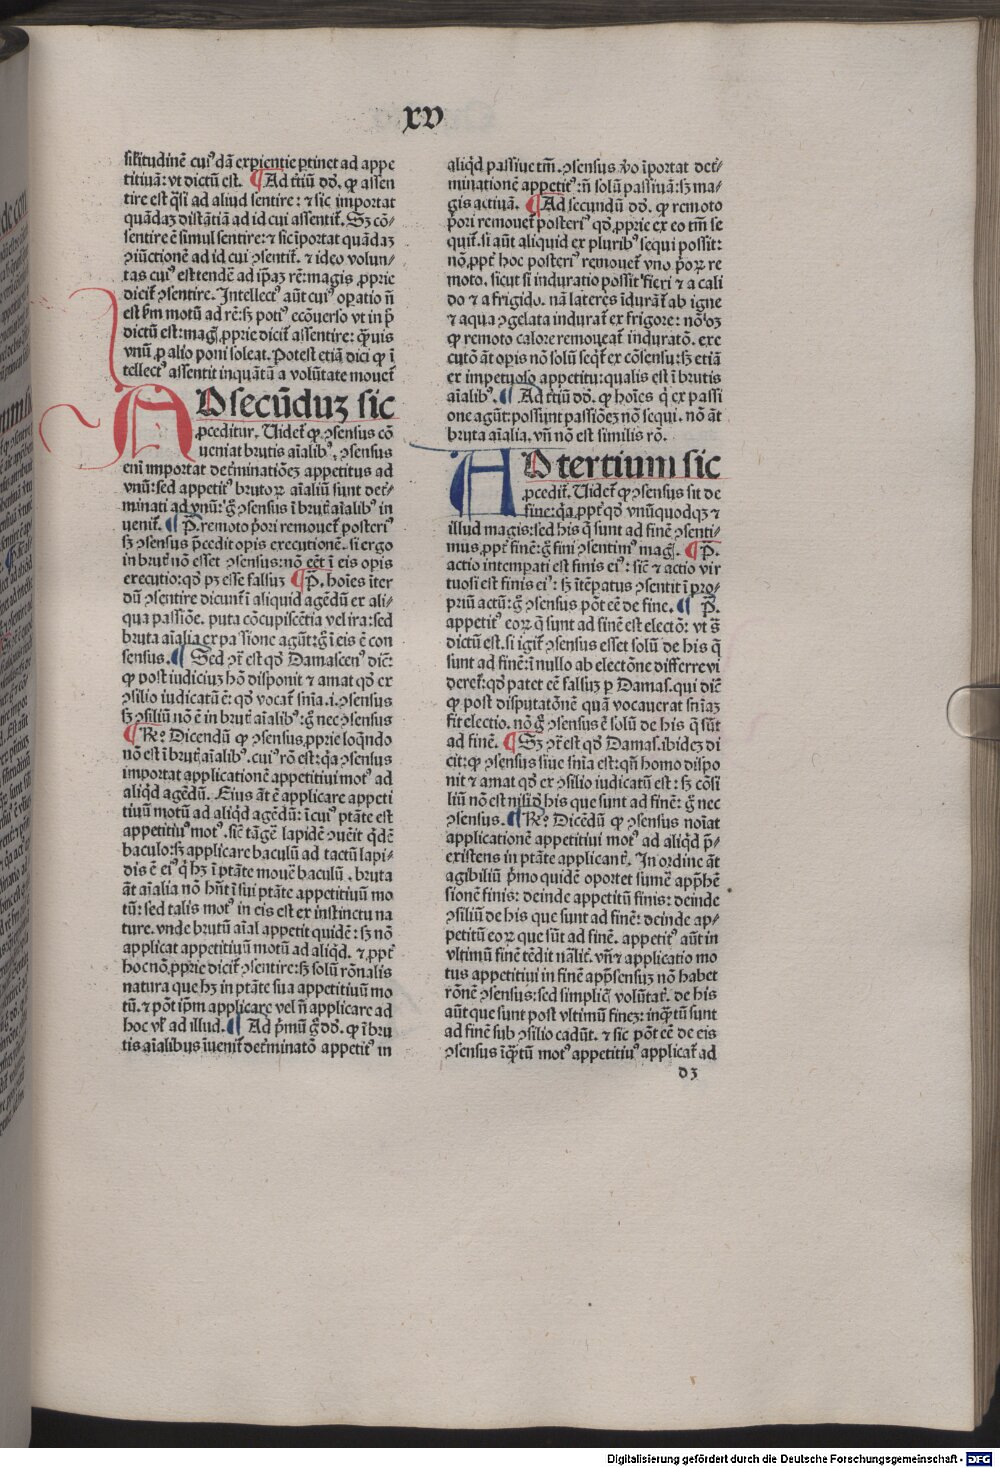 xv
silitudinē cuiꝰdā experientie ꝑtinet ad appe
titiuā: vt dictū est. ¶ Ad t̄tiū dō. ꝙ assen
tire est q̄si ad aliud sentire: ⁊ sic importat
quādaꝫ distātiā ad id cui assentit̄. Sꝫ cō⸗
sentire ē simul sentire: ⁊ sic īportat quādaꝫ
ꝯiūctionē ad id cui ꝯsentit̄. ⁊ ideo volun⸗
tas cuiꝰ est tendē ad ip̄aꝫ rē: magis ꝓprie
dicit̄ ꝯsentire. Intellectꝰ aūt cuiꝰ oꝑatio n̄
est ẜm motū ad rē: sꝫ potiꝰ ecōuerso vt in p̄
dictū est: maḡ ꝓprie dicit̄ assentire: q̄uis
vnū ꝓ alio poni soleat. Potest etiā dici ꝙ ī
tellectꝰ assentit inquātū a volūtate mouet̄
AD secūduꝫ sic
ꝓceditur. Uidet̄ ꝙ ꝯsensus cō
ueniat brutis aīalibꝰ. ꝯsensus
enī importat det̄minatiōeꝫ appetitus ad
vnū: sed appetitꝰ brutoꝝ aīaliū sunt det̄⸗
minati ad vnū: g̊ ꝯsensus ī brut̄ aīalibꝰ in
uenit̄. ¶ P̄. remoto p̄ori remouet̄ posteriꝰ
sꝫ ꝯsensus p̄cedit opis executionē. si ergo
in brut̄ nō esset ꝯsensus: nō eēt ī eis opis
executio: qō pꝫ esse falsuꝫ ¶ P̄. hoīes īter
dū ꝯsentire dicunt̄ ī aliquid agēdū ex ali⸗
qua passiōe. puta cōcupiscētia vel ira: sed
bruta aīalia ex passione agūt: g̊ ī eis ē con
sensus. ¶ Sed ꝯ̄ est qō Damascenꝰ dic̄:
ꝙ post iudiciuꝫ hō disponit ⁊ amat qō ex
ꝯsilio iudicatū ē: qō vocat̄ snīa .i. ꝯsensus
sꝫ ꝯsiliū nō ē in brut̄ aīalibꝰ: g̊ nec ꝯsensus
¶ Rꝰ Dicendū ꝙ ꝯsensus ꝓprie loq̄ndo
nō est ī brut̄ aīalibꝰ. cuiꝰ rō est: q̄a ꝯsensus
importat applicationē appetitiui motꝰ ad
aliq̄d agēdū. Eius āt ē applicare appeti
tiuū motū ad aliq̄d agēdū: ī cuiꝰ ptāte est
appetitiuꝰ motꝰ. sic̄ tāgē lapidē ꝯuēit q̄dē
baculo: sꝫ applicare baculū ad tactū lapi⸗
dis ē eiꝰ q̄ hꝫ ī ptāte mouē baculū. bruta
āt aīalia nō hn̄t ī sui ptāte appetitiuū mo
tū: sed talis motꝰ in eis est ex instinctu na
ture. vnde brutū aīal appetit quidē: sꝫ nō
applicat appetitiuū motū ad aliq̄d. ⁊ ꝓpt̄
hoc nō ꝓprie dicit̄ ꝯsentire: sꝫ solū rōnalis
natura que hꝫ in ptāte sua appetitiuū mo
tū. ⁊ pōt ip̄m applicare vel n̄ applicare ad
hoc vl̄ ad illud. ¶ Ad p̄mū g̊ dō. ꝙ ī bru
tis aīalibus īuenit̄ det̄minatō appetitꝰ in
aliq̄d passiue tm̄. ꝯsensus v̊o īportat det̄⸗
minationē appetitꝰ: n̄ solū passiuā: sꝫ ma⸗
gis actiuā. ¶ Ad secundū dō. ꝙ remoto
p̄ori remouet̄ posteriꝰ qō ꝓprie ex eo tm̄ se
quit̄. si aūt aliquid ex pluribꝰ sequi possit:
nō ꝓpt̄ hoc posteriꝰ remouet̄ vno p̄oꝝ re
moto. sicut si induratio possit fieri ⁊ a cali
do ⁊ a frigido. nā lateres īdurāt̄ ab igne
⁊ aqua ꝯgelata indurat̄ ex frigore: nō oꝫ
ꝙ remoto calore remoueat̄ induratō. exe
cutō āt opis nō solū seq̄t̄ ex cōsensu: sꝫ etiā
ex impetuoso appetitu: qualis est ī brutis
aīalibꝰ. ¶ Ad t̄tiū dō. ꝙ hoīes q̄ ex passi
one agūt: possunt passiōeꝫ nō sequi. nō āt
bruta aīalia. vn̄ nō est similis rō.
AD tertium sic
ꝓcedit̄. Uidet̄ ꝙ ꝯsensus sit de
fine: q̄a ꝓpt̄ qō vnūquodqꝫ ⁊
illud magis: sed his q̄ sunt ad finē ꝯsenti⸗
mus ꝓpt̄ finē: g̊ fini ꝯsentimꝰ maḡ. ¶ P̄.
actio intempati est finis eiꝰ: sic̄ ⁊ actio vir
tuosi est finis eiꝰ: sꝫ ītēpatus ꝯsentit ī pro⸗
priū actū: g̊ ꝯsensus pōt eē de fine. ¶ P̄.
appetitꝰ eoꝝ q̄ sunt ad finē est electō: vt s̄
dictū est. si igit̄ ꝯsensus esset solū de his q̄
sunt ad finē: ī nullo ab electōne differre vi
deret̄: qō patet eē falsuꝫ ꝑ Damas. qui dic̄
ꝙ post disputatōnē quā vocauerat snīaꝫ
fit electio. nō g̊ ꝯsensus ē solū de his q̄ sūt
ad finē. ¶ Sꝫ ꝯ̄ est qō Damas. ibideꝫ di
cit: ꝙ ꝯsensus siue snīa est: qn̄ homo dispo
nit ⁊ amat qō ex ꝯsilio iudicatū est: sꝫ cōsi
liū nō est nisi d̄ his que sunt ad finē: g̊ nec
ꝯsensus. ¶ Rꝰ Dicēdū ꝙ ꝯsensus noīat
applicationē appetitiui motꝰ ad aliq̄d p̄⸗
existens in ptāte applicant̄. In ordine āt
agibiliū p̄mo quidē oportet sumē app̄hē
sionē finis: deinde appetitū finis: deinde
ꝯsiliū de his que sunt ad finē: deinde ap⸗
petitū eoꝝ que sūt ad finē. appetitꝰ aūt in
vltimū finē tēdit nālit̄. vn̄ ⁊ applicatio mo
tus appetitiui in finē app̄sensuꝫ nō habet
rōnē ꝯsensus: sed simplic̄ volūtat̄. de his
aūt que sunt post vltimū fineꝫ: inq̄tū sunt
ad finē sub ꝯsilio cadūt. ⁊ sic pōt eē de eis
ꝯsensus īq̄tū motꝰ appetitiuꝰ applicat̄ ad
d3
Digitalisierung gefördert durch die Deutsche Forschungsgemeinschaft - DFG